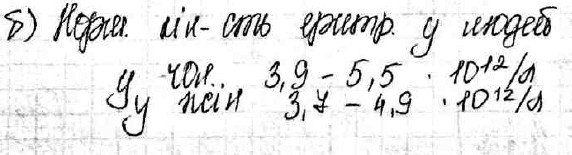 б) Норм. кін-сть еритр. у людей
у чол. 3,9 - 5,5 · 10¹²/л
у жін 3,7 - 4,9 · 10¹²/л